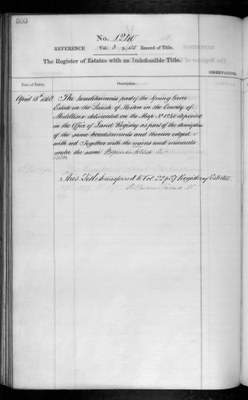 No. 1240
REFERENCE Vol. 3 p. Record of Title.
The Register of Estates with an Indefeasible Title.
Date of Entry. Description. OBSERVATIONS.
April 15th The hereditaments part of the Spring Grove
Estate in the Parish of Heston in the County of
Middlesex delineated on the Map No. deposited
in the Office of Land Registry as part of the description
of the same hereditaments and thereon edged
with red Together with the mines and minerals
under the same
This Title transferred to Vol. 22 p. Registry of Estates